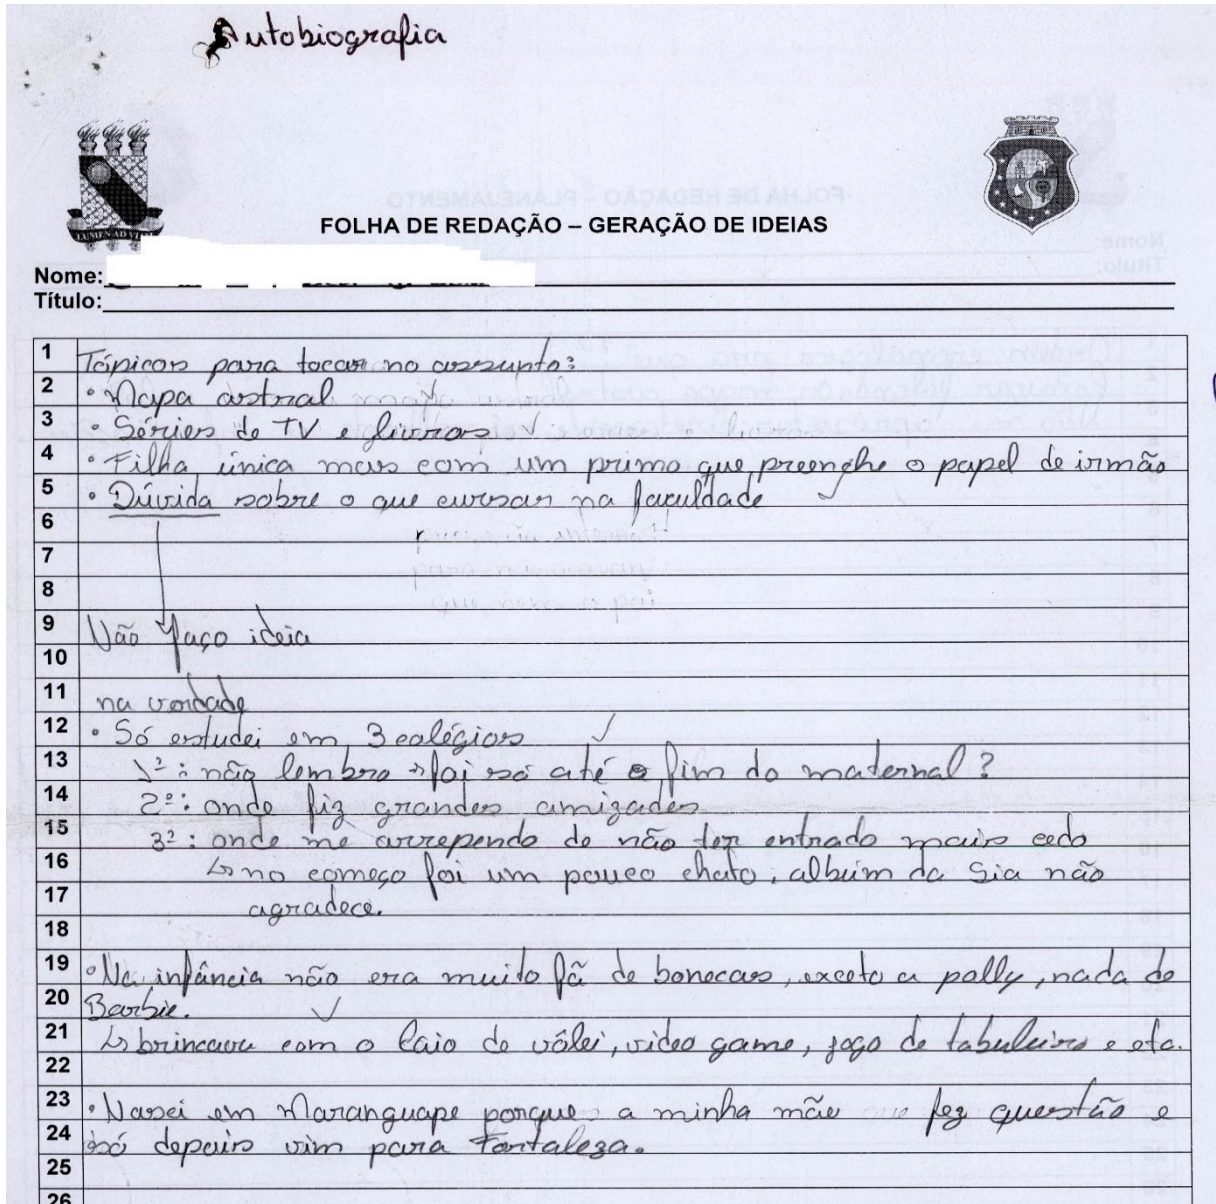 Autobiografia
FOLHA DE REDAÇÃO – GERAÇÃO DE IDEIAS
Nome:
Título:
1 Tópicos para tocar no assunto:
2 • Mapa astral
3 • Séries de TV e livros ✓
4 • Filha única mas com um primo que preenche o papel de irmão
5 • Dúvida sobre o que cursar na faculdade ✓
6
7
8
9 Não faço ideia
10
11 na verdade
12 • Só estudei em 3 colégios ✓
13 1º: não lembro → foi só até o fim do maternal?
14 2º: onde fiz grandes amizades
15 3º: onde me arrependo de não ter entrado mais cedo
16 ↳ no começo foi um pouco chato, album da Sia não
17 agradece.
18
19 • Na infância não era muito fã de bonecas, exceto a polly, nada de
20 Barbie. ✓
21 ↳ brincava com o Caio de vôlei, video game, jogo de tabuleiro e etc.
22
23 • Nasci em Maranguape porque a minha mãe fez questão e
24 só depois vim para Fortaleza.
25
26